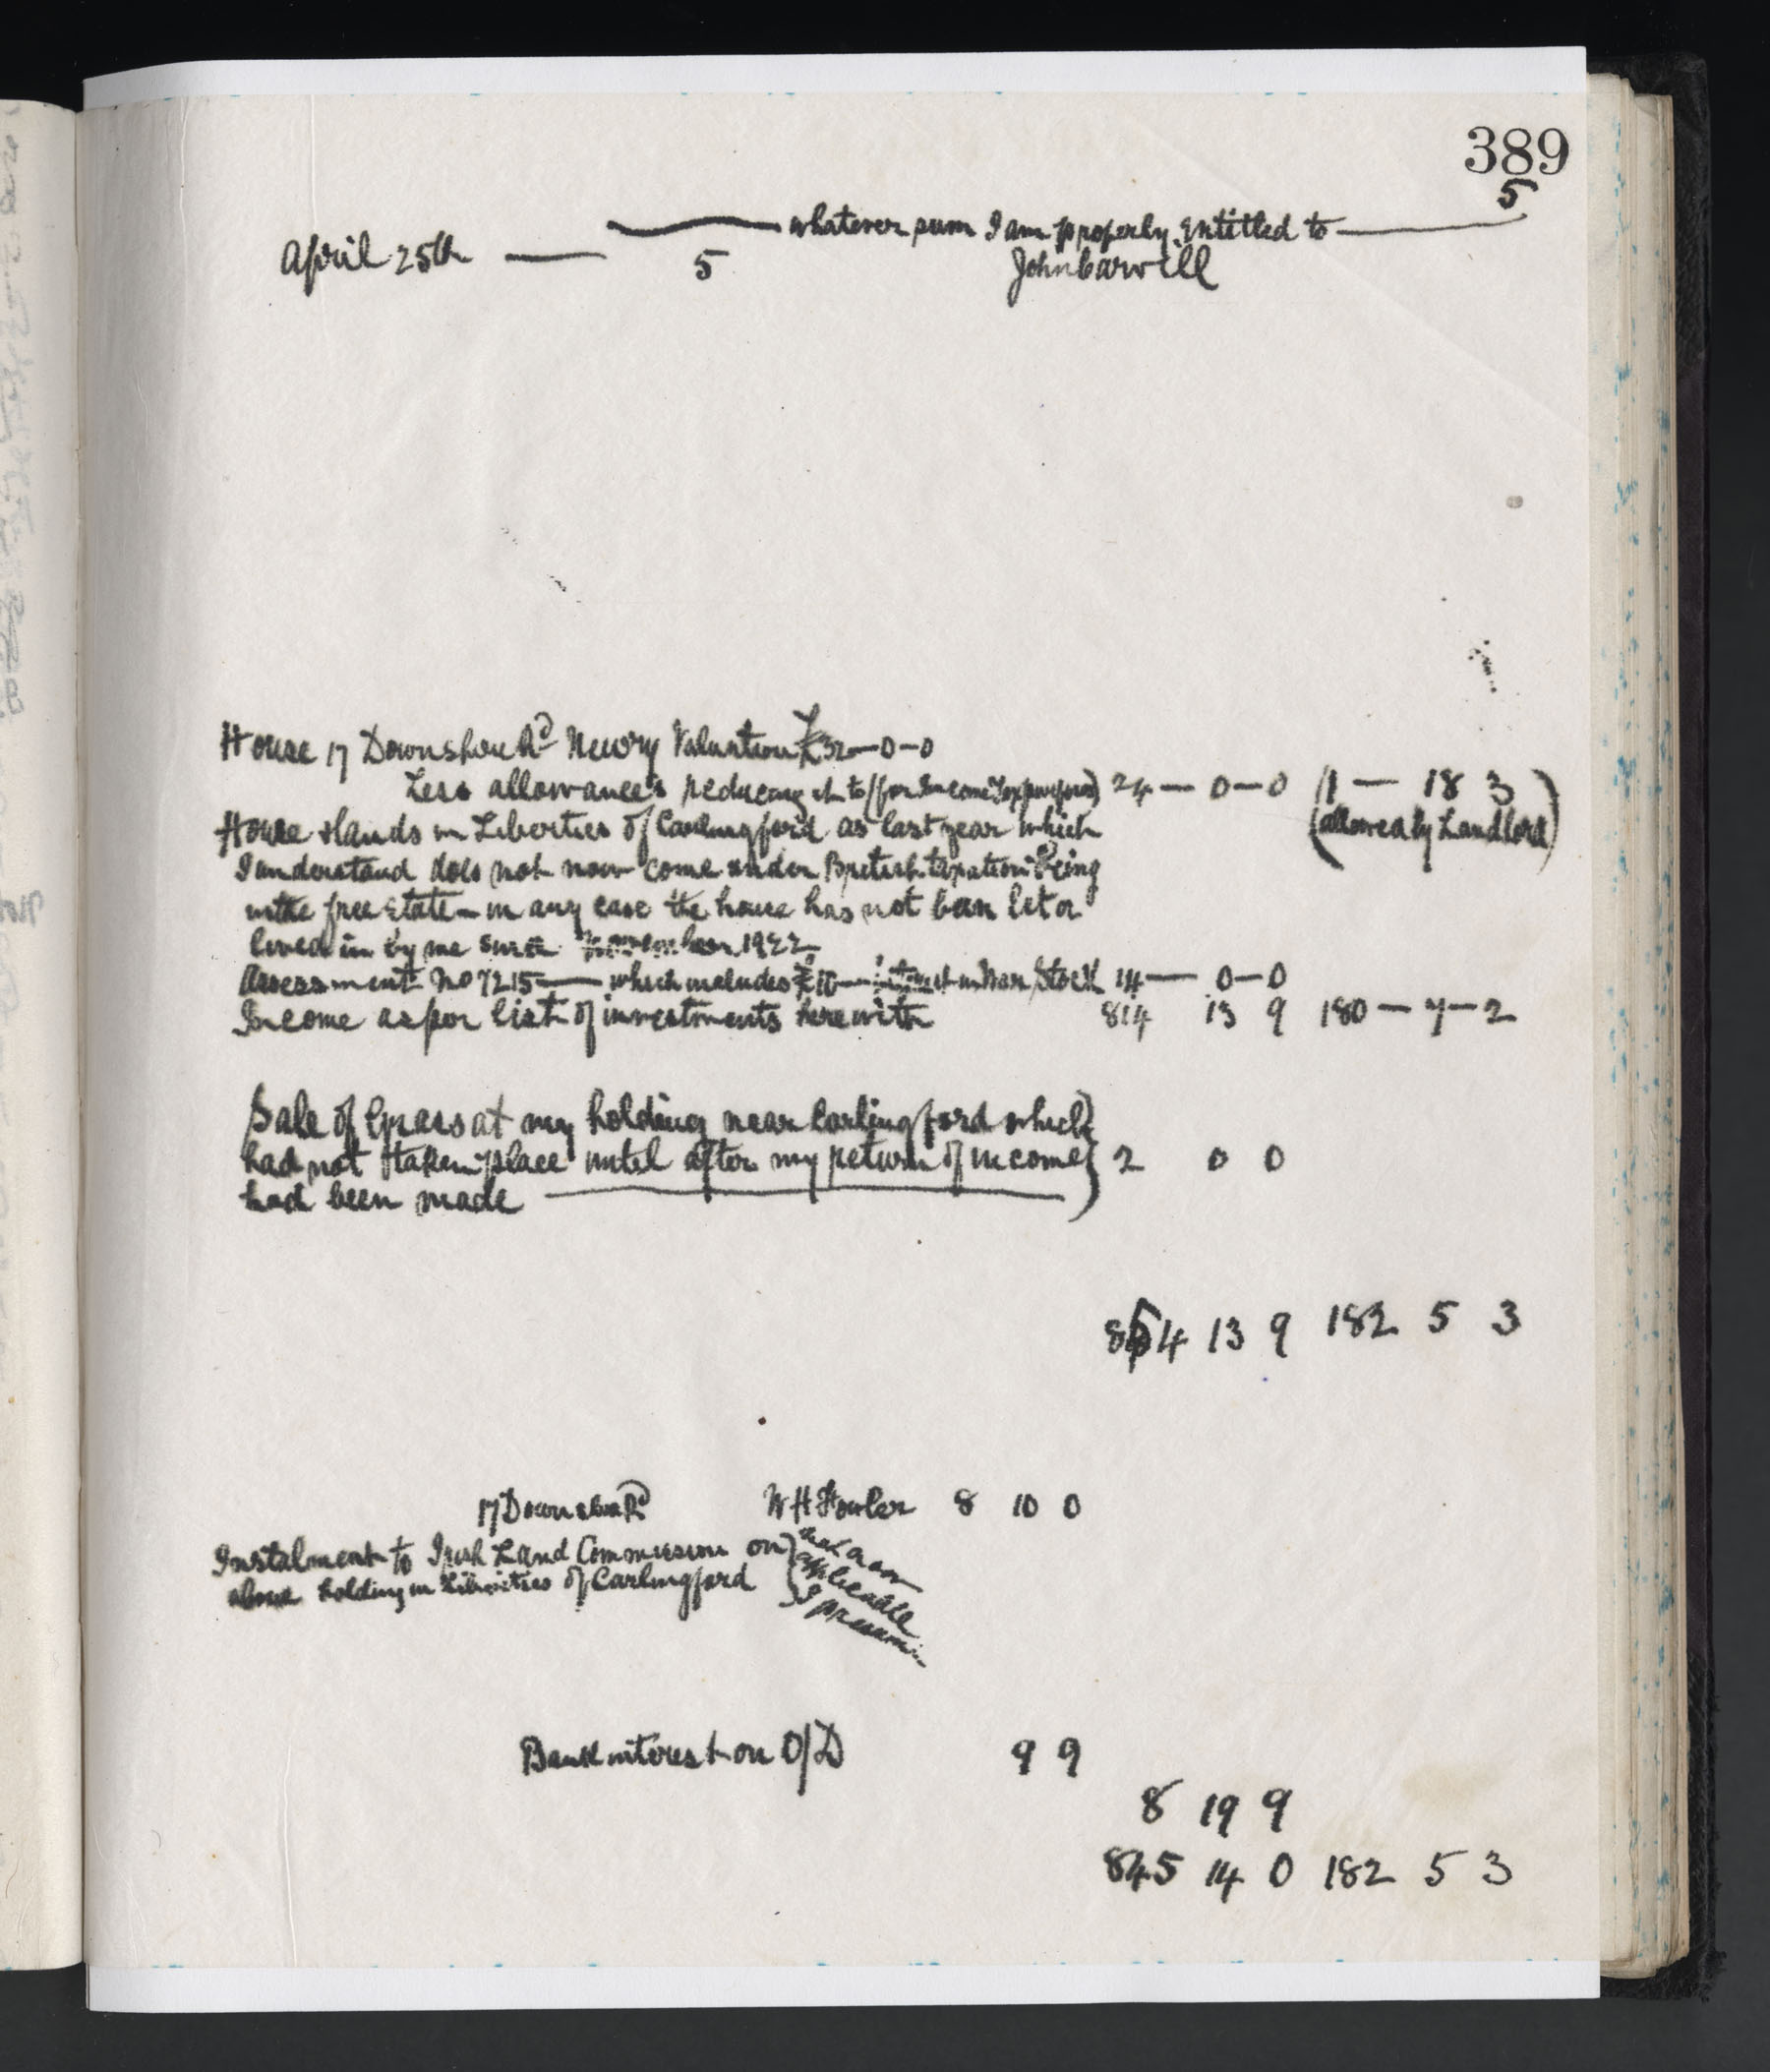 389
5
whatever sum I am properly entitled to
April 25th — 5 John Carvill
House 17 Downshire Rd Newry Valuation £32–0–0
Less allowances reducing it to (for Income Tax purposes) 24 — 0 – 0 (1 — 18 3
House & lands in Liberties of Carlingford as last year which (allowed by Landlord)
I understand does not now come under British taxation being
in the free State – in any case the house has not been let or
lived in by me since November 1922
Assessment No 7215 — which includes £10 — interest in War Stock 14 — 0 – 0
Income as per list of investments herewith 814 13 9 180 – 7 – 2
Sale of Grass at my holding near Carlingford which
had not taken place until after my return of income 2 0 0
had been made
854 13 9 182 5 3
17 Downshire Rd W H Fowler 8 10 0
Instalment to Irish Land Commission on
above holding in Liberties of Carlingford
not now
applicable
I presume
Bank interest on O/D 9 9
8 19 9
845 14 0 182 5 3